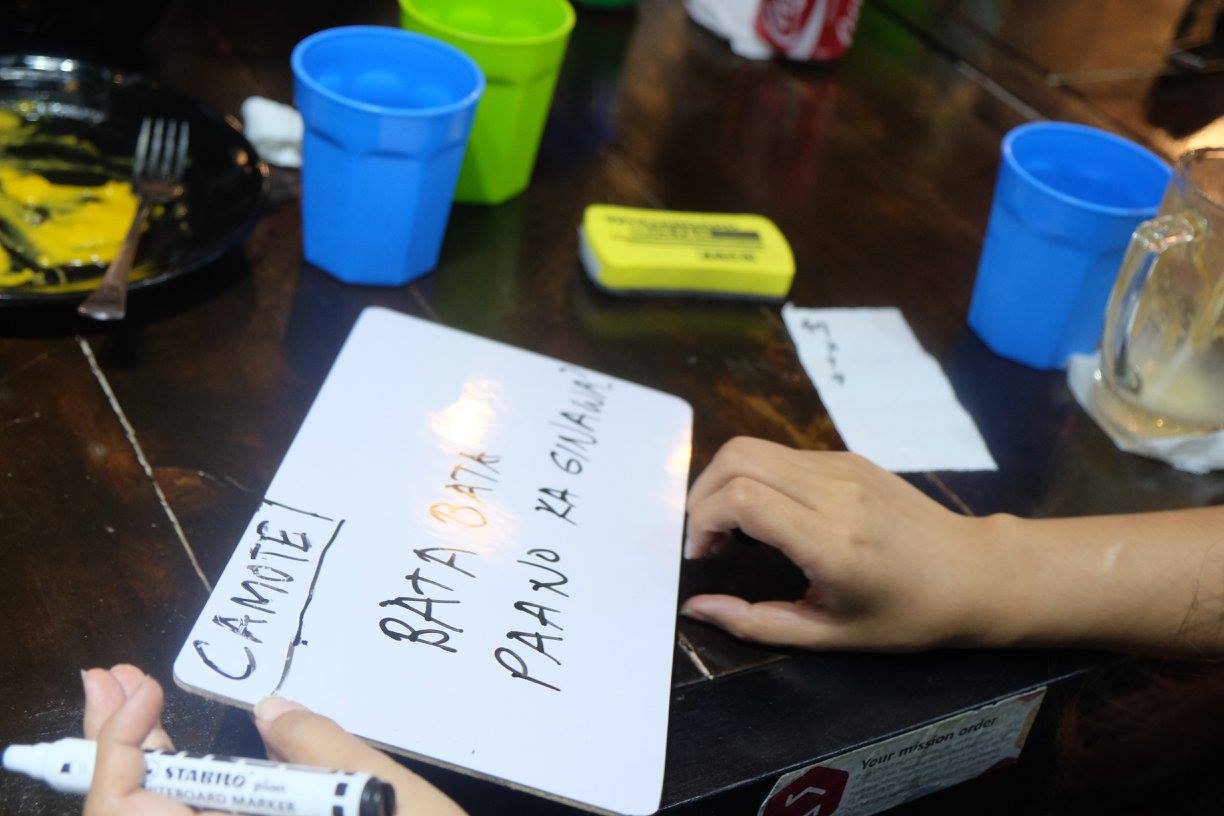 CAMOTE!
BATA BATA
PAANO KA GINAWA?
STABILO plan
WHITEBOARD MARKER
Your mission order